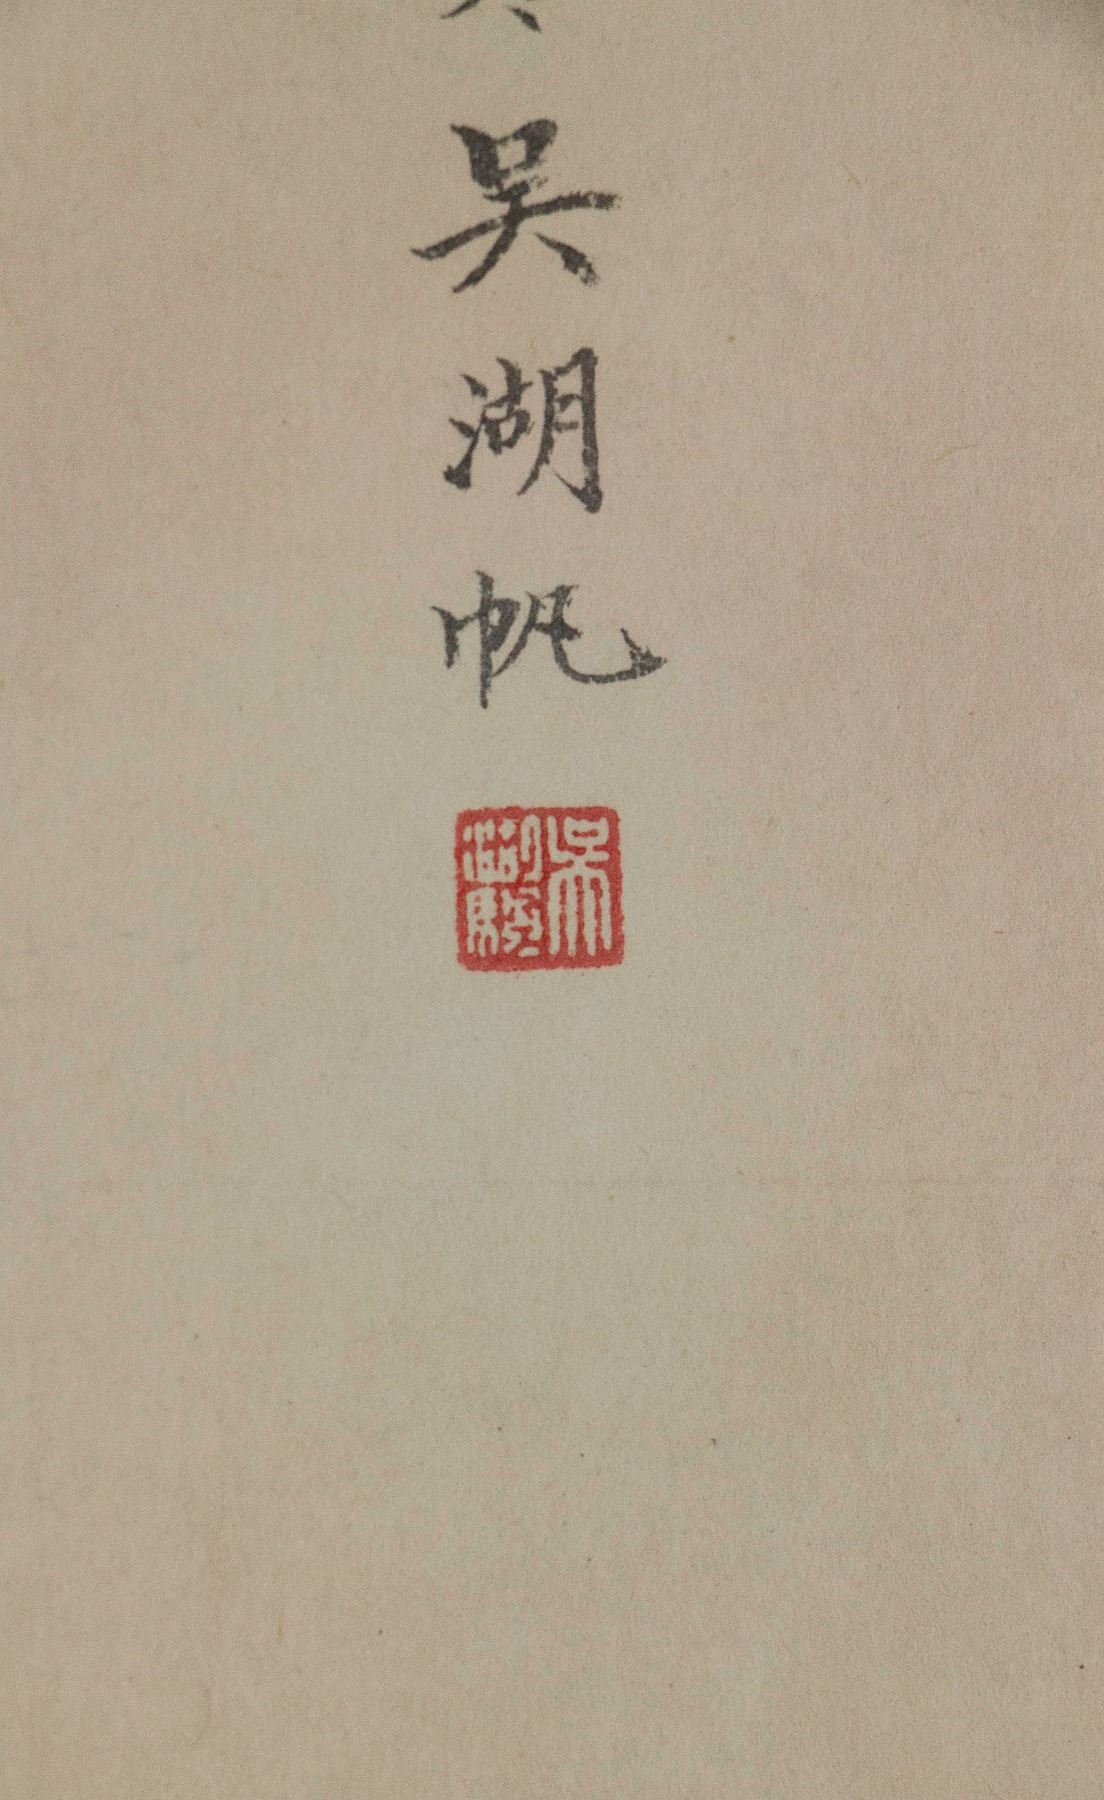 吴湖帆
吴湖颿